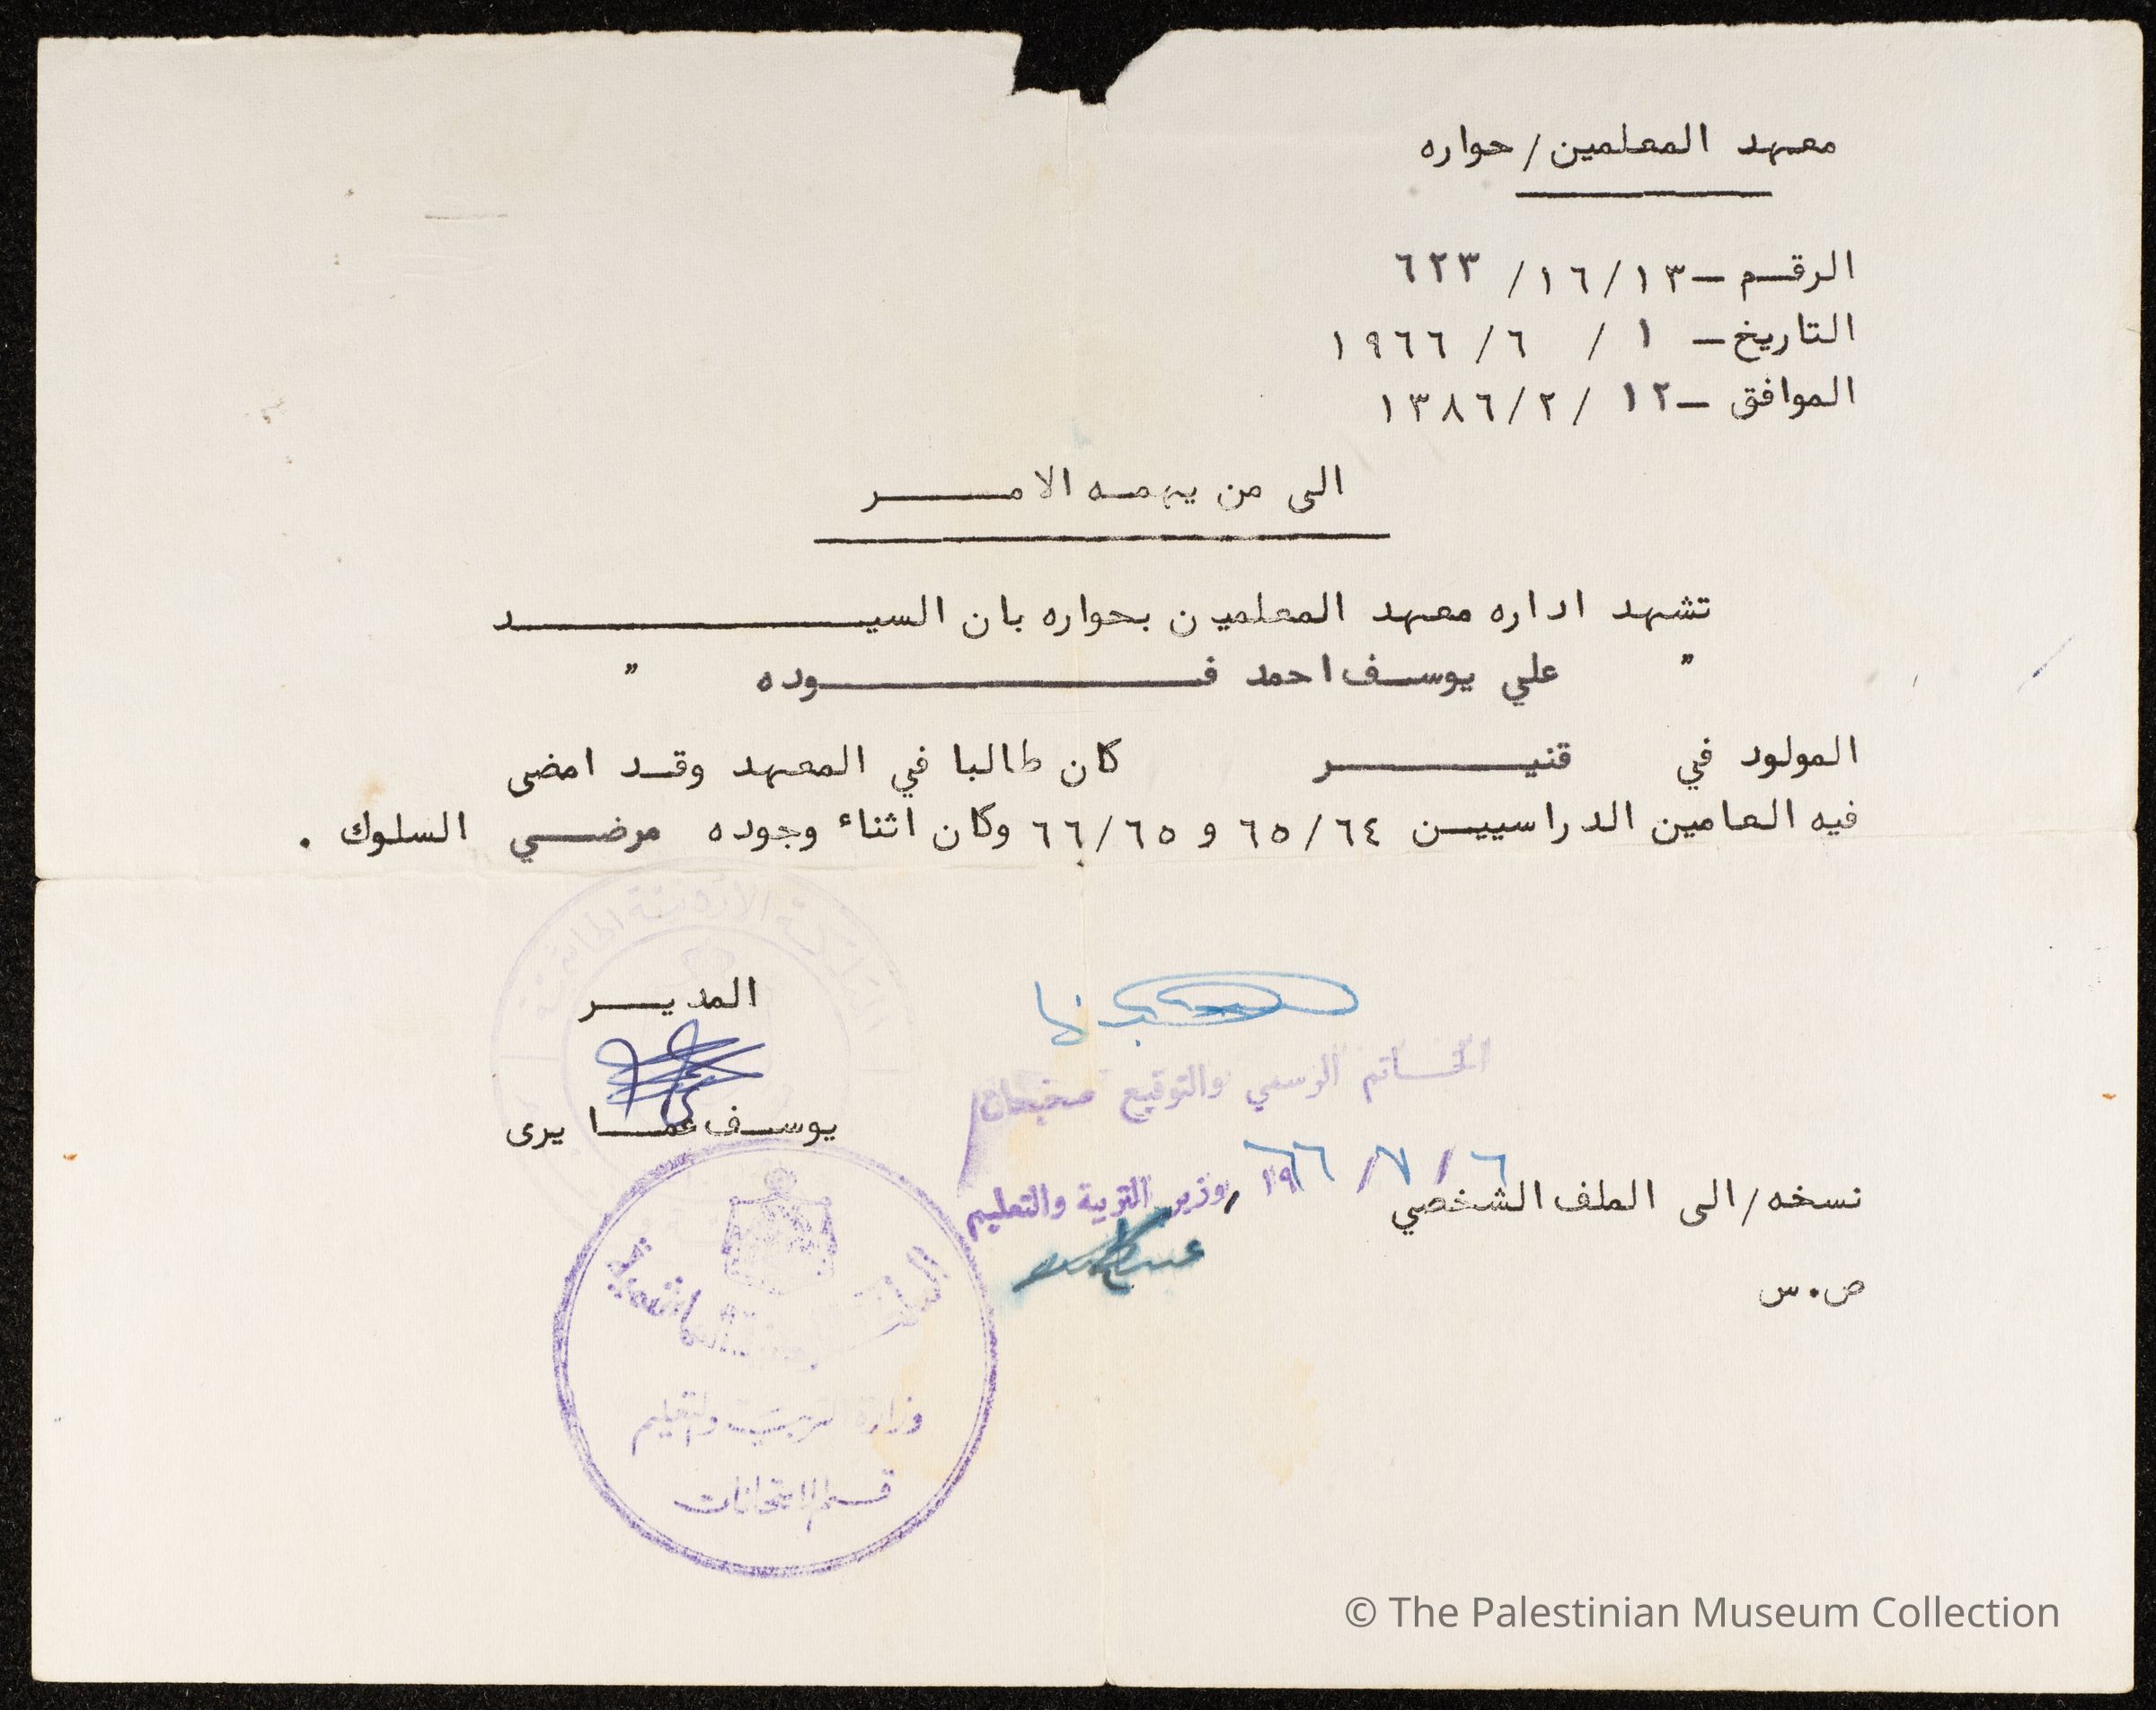 معهد المعلمين/حواره
الرقم -١٦/١٣/ ٦٢٣
التاريخ- ١ / ٦/ ١٩٦٦
الموافق -١٢ /٢/ ١٣٨٦
الى من يهمه الامر
تشهد اداره معهد المعلمين بحواره بان السيد
" علي يوسف احمد فوده "
المولود في قنير كان طالبا في المعهد وقد امضى
فيه العامين الدراسيين ٦٥/٦٤ و ٦٦/٦٥ وكان اثناء وجوده مرضي السلوك .
المملكة الأردنية الهاشمية
المدير
الخاتم الرسمي والتوقيع صحيحان
يوسف عمايرى
٦ / ٧ / ١٩٦٦
وزير التربية والتعليم
نسخه/الى الملف الشخصي
ص.س
وزارة التربية والتعليم
قسم الامتحانات
© The Palestinian Museum Collection